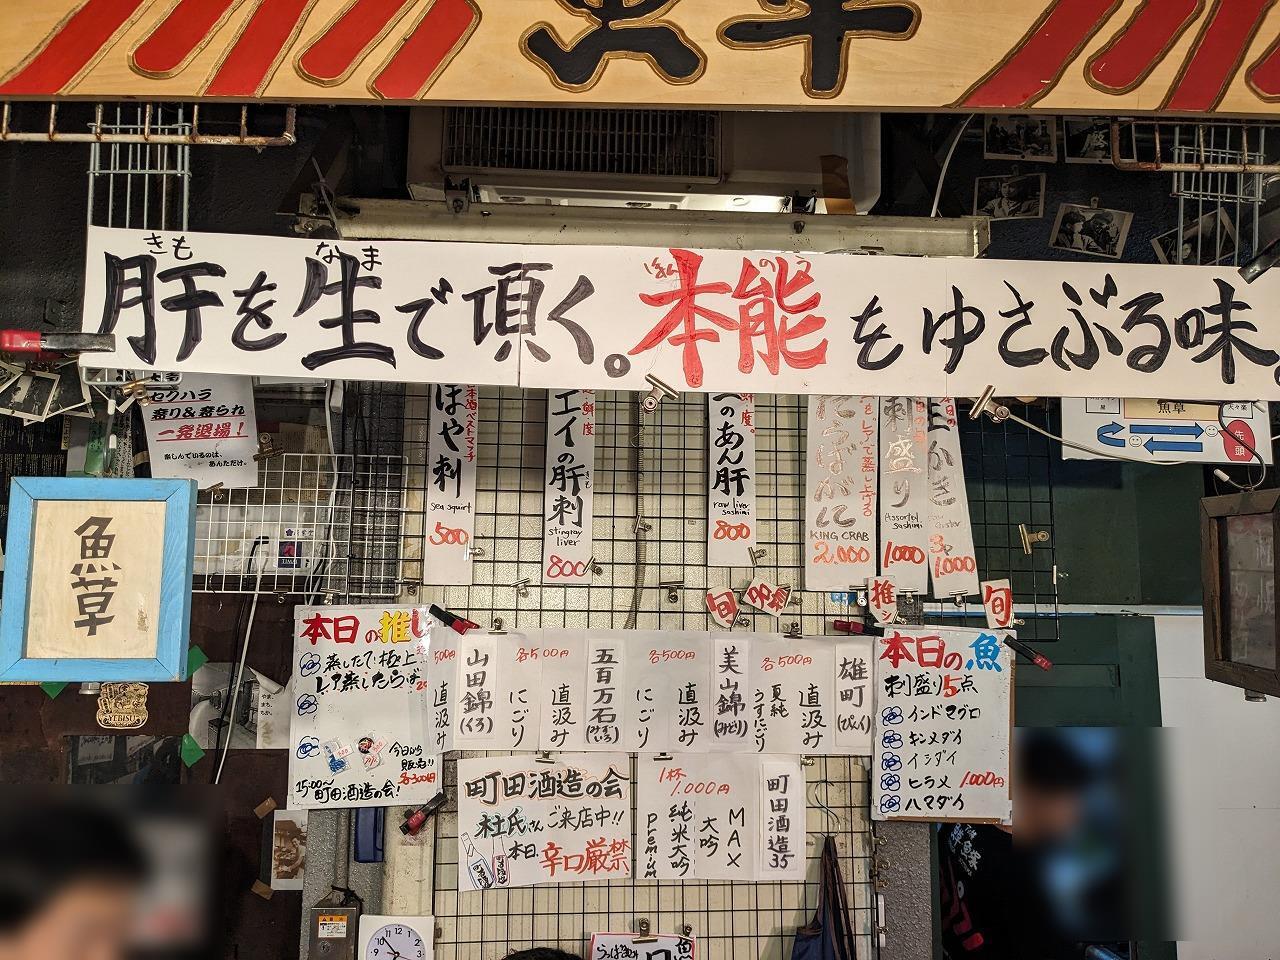 魚草
きも なま ほんのう
肝を生で頂く。本能をゆさぶる味。
セクハラ
怒り&怒られ
一発退場!
楽しんでいるのは、
あんただけ。
魚草
日本酒ベストマッチ
ほや刺
sea squirt
500
鮮度
エイの肝刺
stingray
liver
800
鮮度。
のあん肝
raw liver
sashimi
800
たらばがに
KING CRAB
2.000
刺盛り
Assorted
sashimi
1000
生かき
3P
1.000
魚草
先頭
旬
推シ
旬
本日の推し
蒸したて極上
レア蒸したらば
今日から
各300円
15:00〜
町田酒造の会!
500円
直汲み
山田錦
(くろ)
各500円
にごり
直汲み
五百万石
(みずいろ)
各500円
にごり
直汲み
美山錦
(みどり)
各500円
夏純
うすにごり
直汲み
雄町
(ぴんく)
本日の魚
刺盛り5点
インドマグロ
キンメダイ
イシダイ
ヒラメ 1.000円
ハマダイ
町田酒造の会
杜氏さんご来店中!!
本日、辛口厳禁
1杯
1.000円
premium
純米大吟
大吟
MAX
町田酒造35